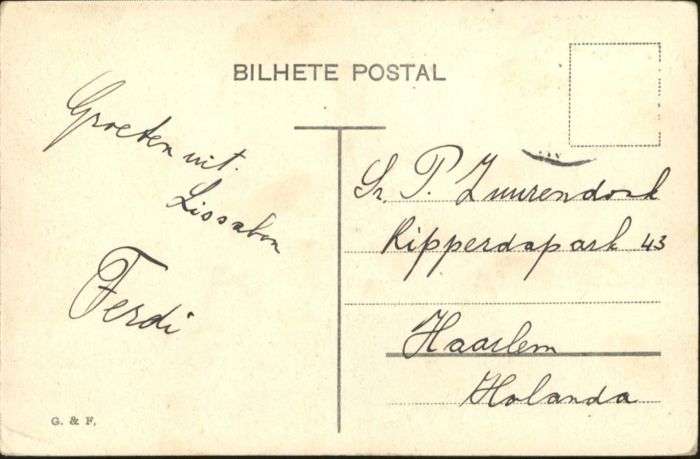 BILHETE POSTAL
Groeten uit
Lissabon
Ferdi
Sr. P. Zuurendonk
Ripperdapark 43
Haarlem
Holanda
G. & F.